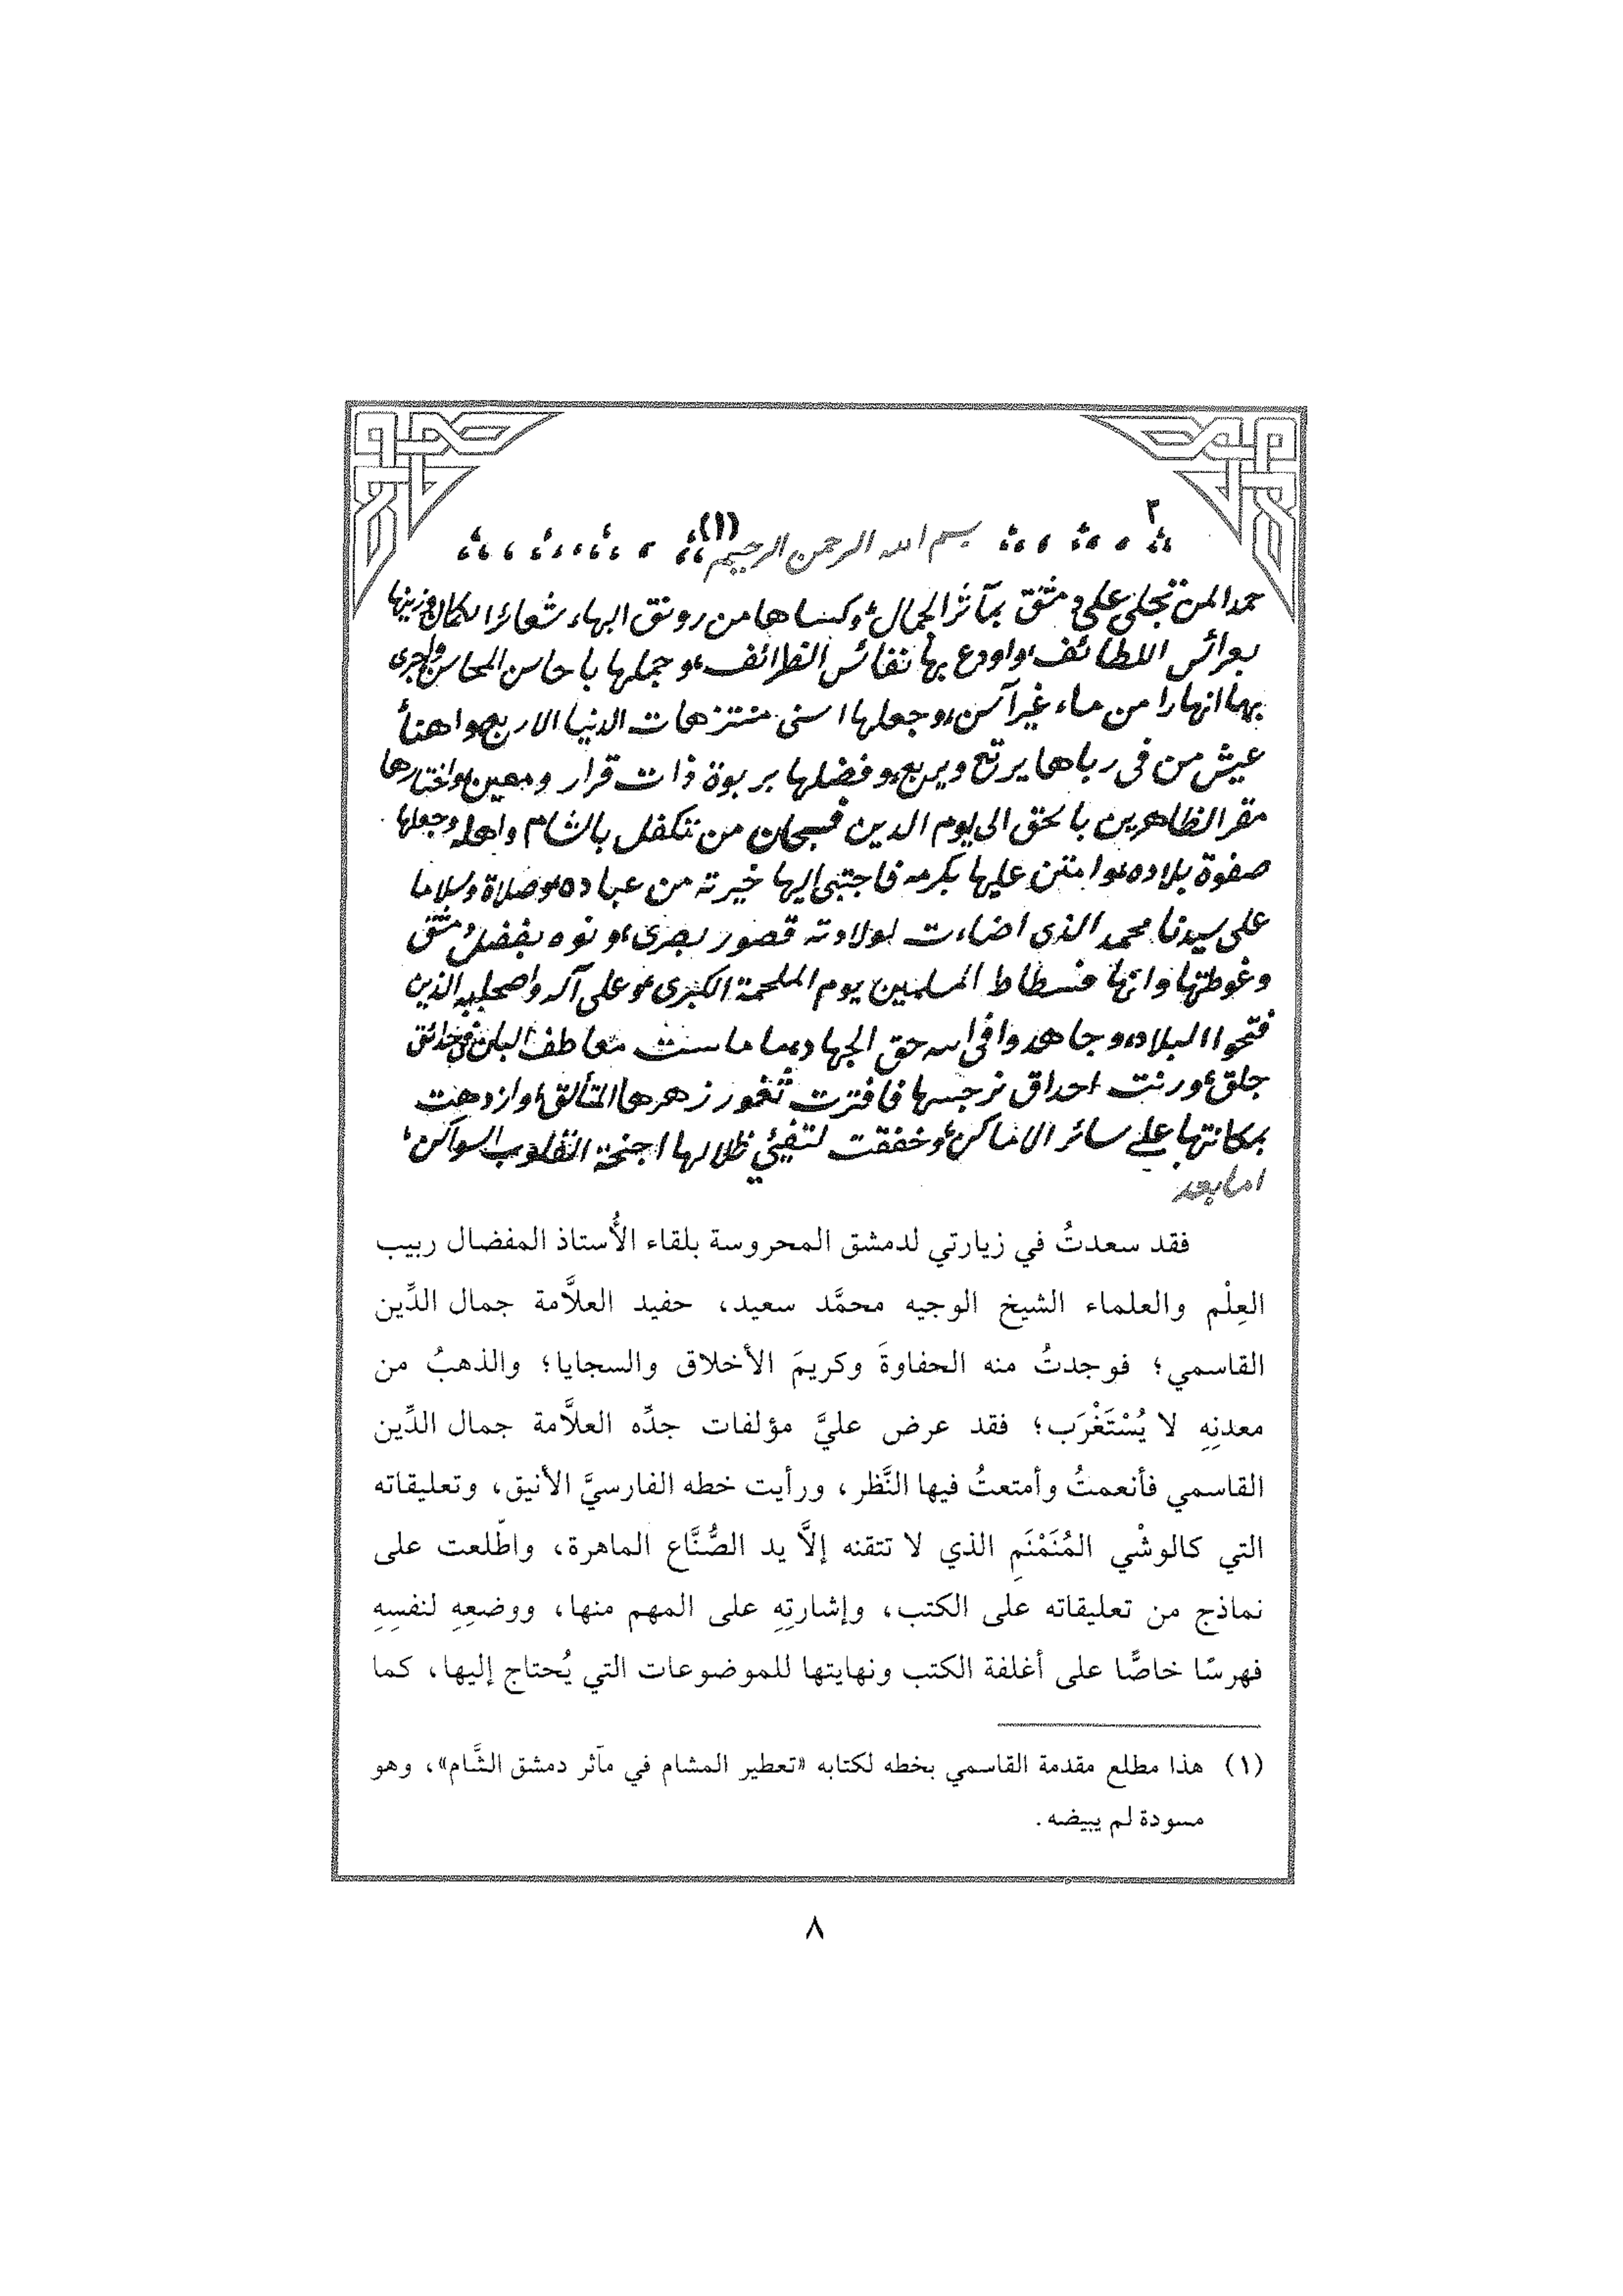 ٢
بسم الله الرحمن الرحيم (١)
حمدا لمن تجلى على دمشق بمآثر الجمال، وكساها من رونق البهاء شعائر الكمال، وزينها
بعرائس اللطائف، واودع بها نفائس الظرائف، وجملها باحاسن المحاسن، واجرى
بها انهارا من ماء غير آسن، وجعلها اسنى منتزهات الدنيا الاربع، واهنأ
عيش من فى رباها يرتع ويربع، وفضلها بربوة ذات قرار ومعين، واختارها
مقر الظاهرين بالحق الى يوم الدين فسبحان من تكفل بالشام واهله وجعلها
صفوة بلاده، وامتن عليها بكرمه فاجتبى إليها خيرته من عباده، وصلاة وسلاما
على سيدنا محمد الذى اضاءت لولادته قصور بصرى، ونوه بفضل دمشق
وغوطتها وانها فسطاط المسلمين يوم الملحمة الكبرى، وعلى آله واصحابه الذين
فتحوا البلاد، وجاهدوا فى الله حق الجهاد، ما ماست معاطف البان فى حدائق
جلق، ورنت احداق نرجسها فافترت ثغور زهرها المتألق، وازدهت
بمكانتها على سائر الاماكن، وخفقت لتفيئ ظلالها اجنحة القلوب السواكن،
اما بعد
فقد سعدتُ في زيارتي لدمشق المحروسة بلقاء الأُستاذ المفضال ربيب
العِلْم والعلماء الشيخ الوجيه محمَّد سعيد، حفيد العلاَّمة جمال الدِّين
القاسمي؛ فوجدتُ منه الحفاوةَ وكريمَ الأخلاق والسجايا؛ والذهبُ من
معدنِهِ لا يُسْتَغْرَب؛ فقد عرض عليَّ مؤلفات جدِّه العلاَّمة جمال الدِّين
القاسمي فأنعمتُ وأمتعتُ فيها النَّظر، ورأيت خطه الفارسيَّ الأنيق، وتعليقاته
التي كالوشْي المُنَمْنَمِ الذي لا تتقنه إلاَّ يد الصُّنَّاع الماهرة، واطّلعت على
نماذج من تعليقاته على الكتب، وإشارتِهِ على المهم منها، ووضعِهِ لنفسِهِ
فهرسًا خاصًّا على أغلفة الكتب ونهايتها للموضوعات التي يُحتاج إليها، كما
(١) هذا مطلع مقدمة القاسمي بخطه لكتابه «تعطير المشام في مآثر دمشق الشَّام»، وهو
مسودة لم يبيضه.
٨